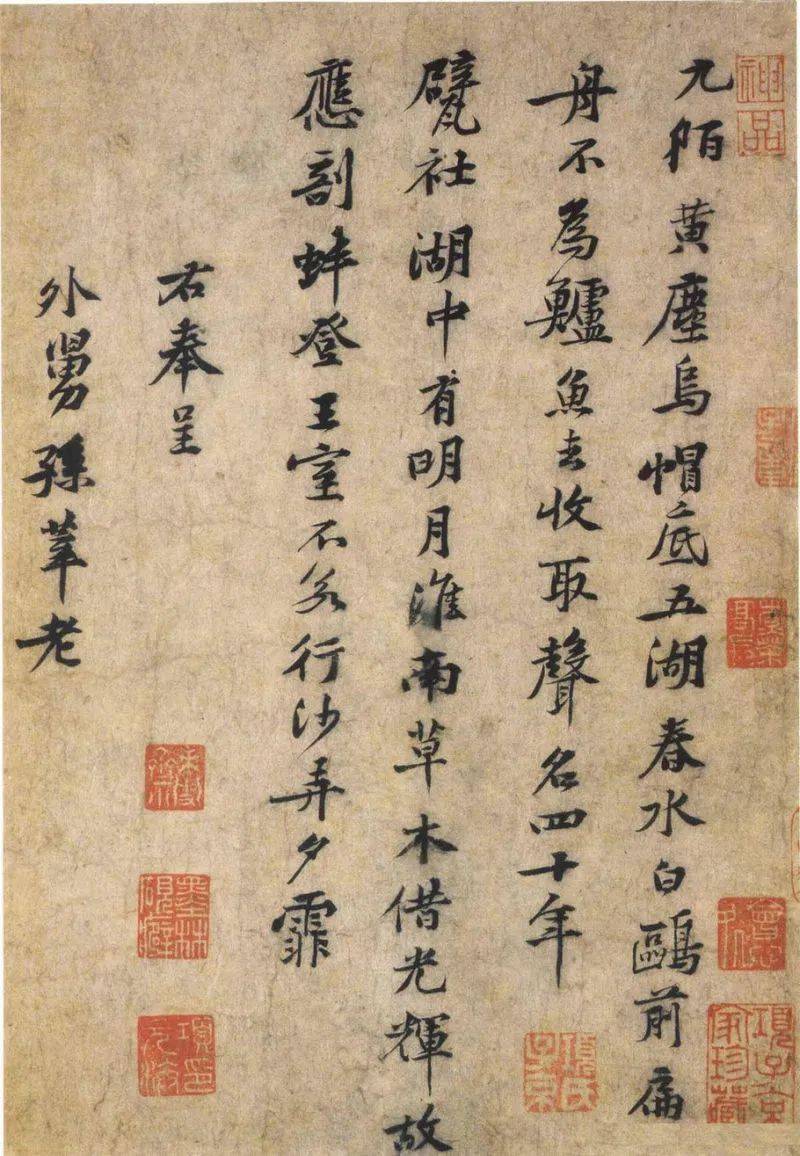 九陌黃塵烏帽底五湖春水白鷗前扁
舟不為鱸魚去收取聲名四十年
甓社湖中有明月淮南草木借光輝故
應剖蚌登王室不若行沙弄夕霏
右奉呈
外舅孫莘老
神品
項子京家珍藏
項氏子京